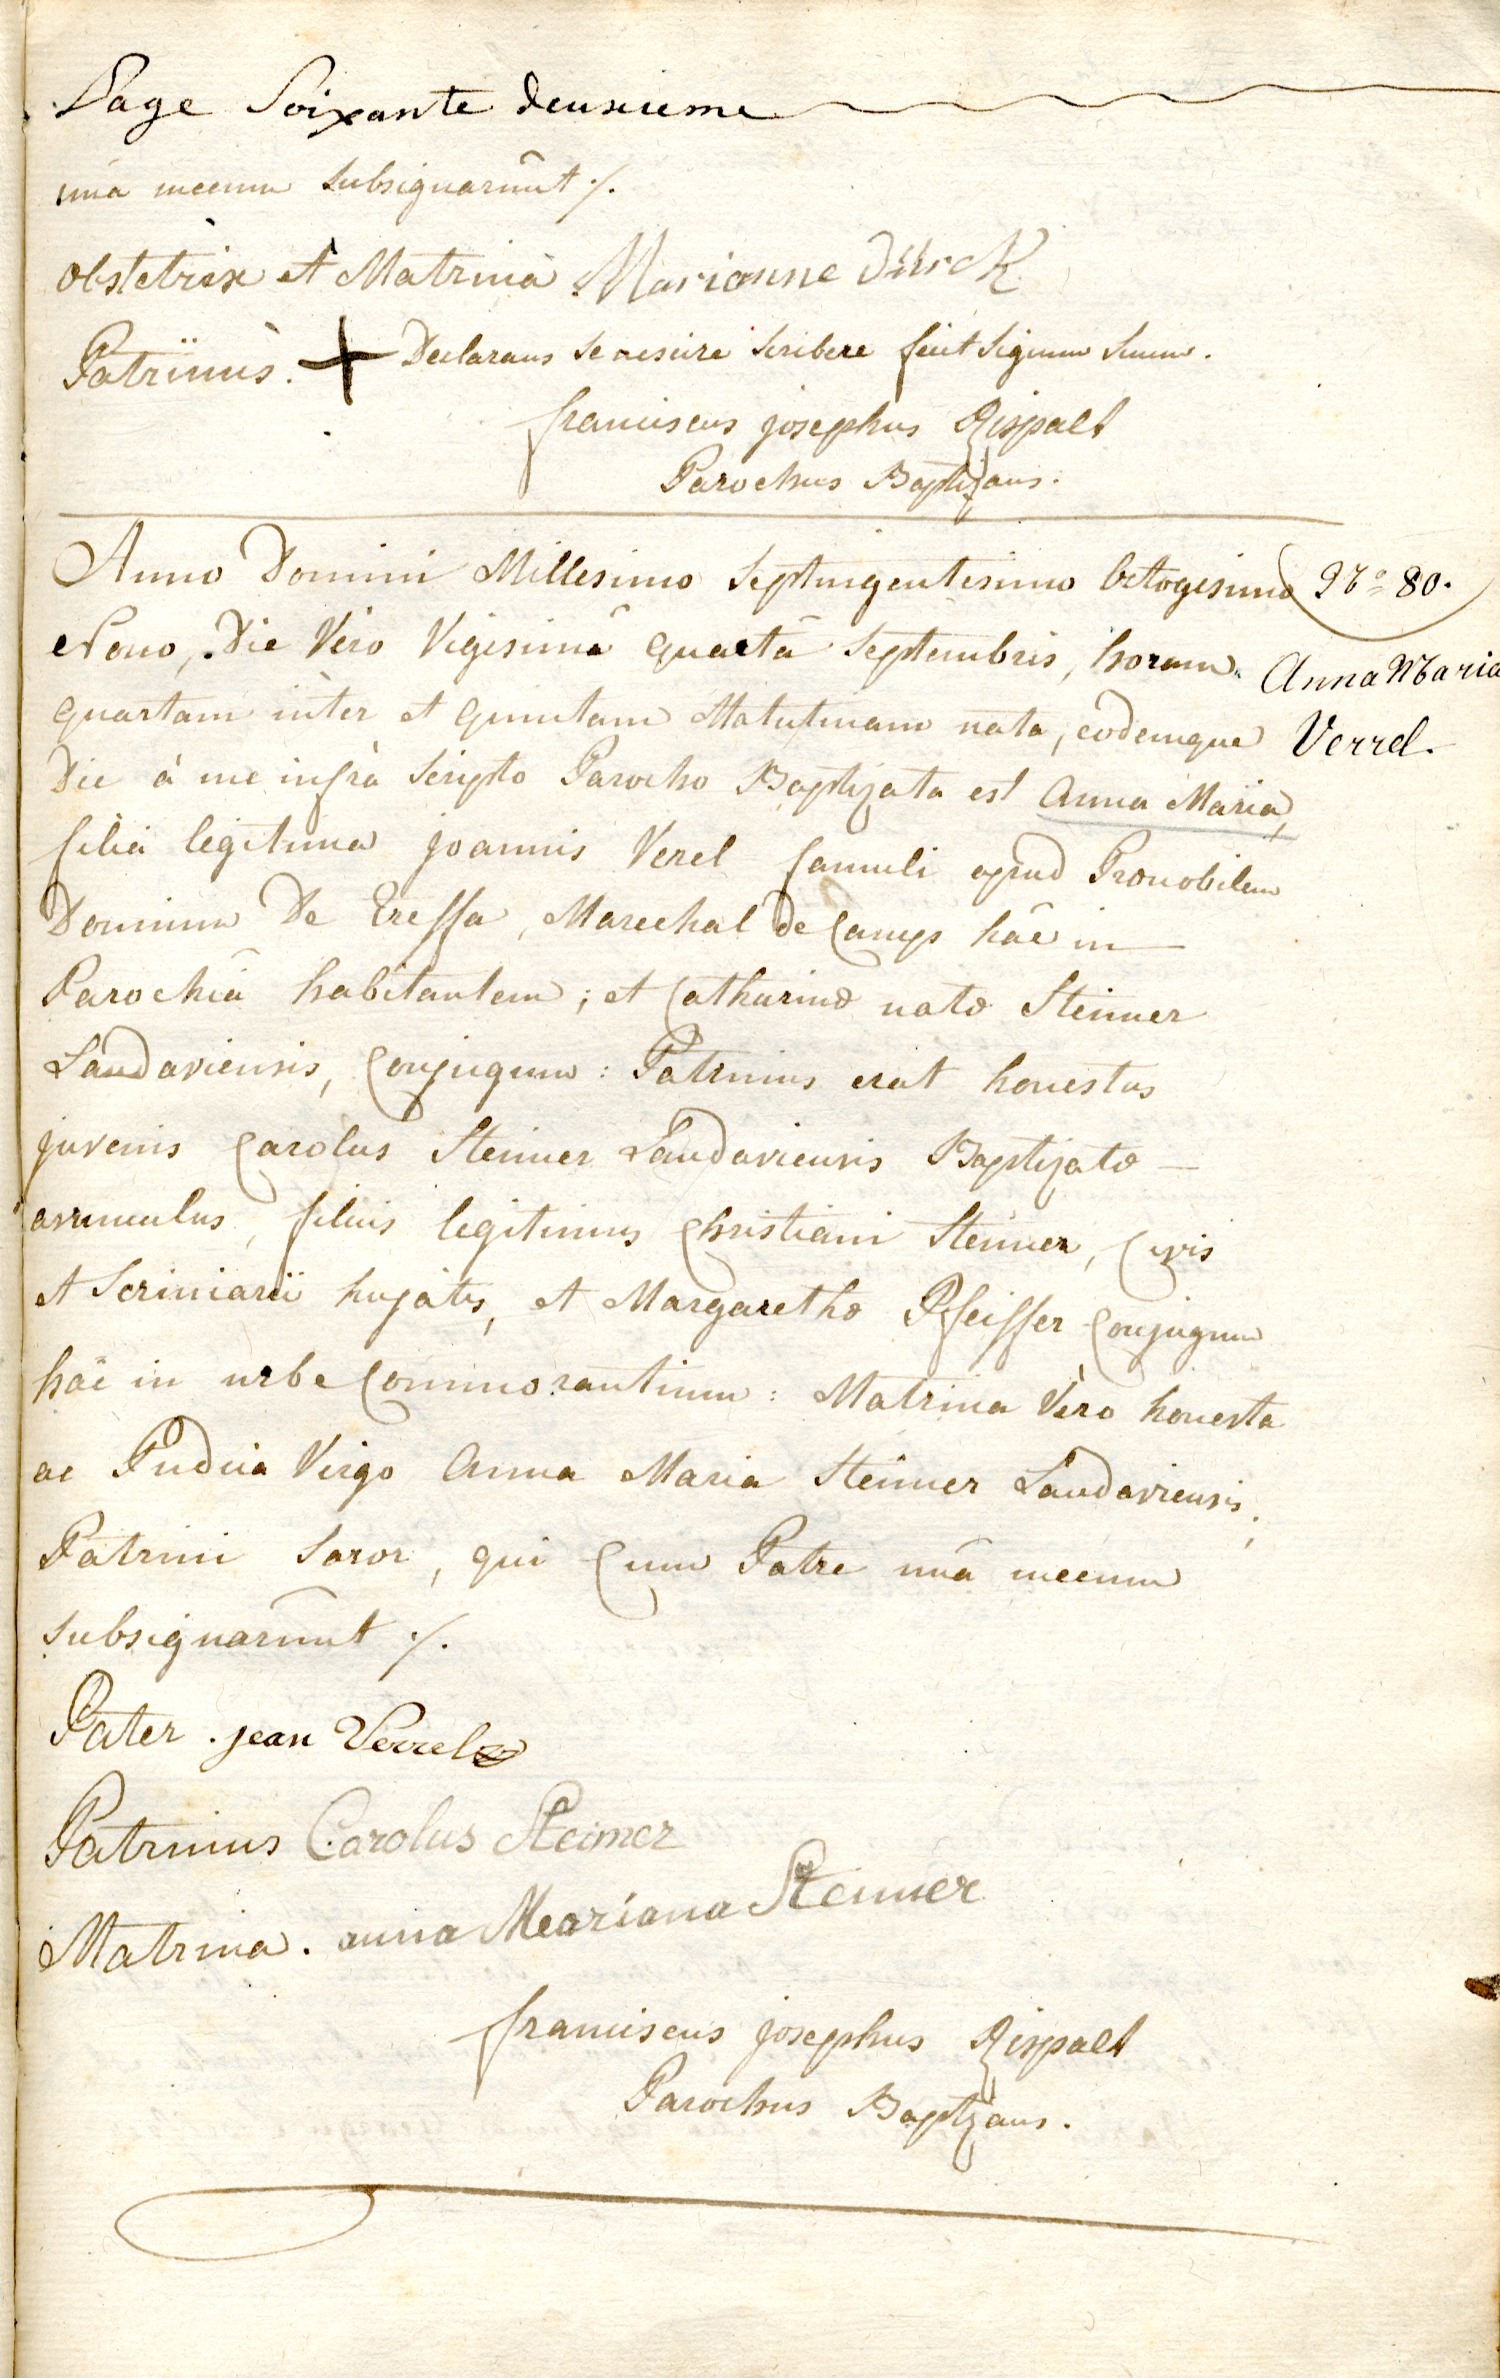 Page Soixante deuxieme
unà mecum subsignarunt ./.
Obstetrix et Matrina Marianne Dürck
Patrinus. + Declarans se nescire scribere fecit signum suum.
franciscus josephus Rispalt
Parochus Baptizans.
Anno Domini Millesimo Septingentesimo Octogesimo
Nº 80.
Nono, Die Vero Vigesimâ quartâ Septembris, horam
Anna Maria
quartam inter et quintam Matutinam nata, eodemque
Verrel.
Die à me infrà scripto Parocho Baptizata est Anna Maria,
filia legitima joannis Verel famuli apud Pronobilem
Dominum De Treffa, Marechal de Camps hâc in
Parochiâ habitantem; et Catharinæ natæ Steimer
Landaviensis, Conjugum: Patrinus erat honestus
juvenis Carolus Steimer Landaviensis Baptizatæ
avunculus, filius legitimus Christiani Steimer, Civis
et Scriniarii hujatis, et Margarethæ Pfeiffer Conjugum
hâc in urbe Commorantium: Matrina Vero honesta
ac Pudica Virgo Anna Maria Steimer Landaviensis,
Patrini Soror, qui Cum Patre unâ mecum
subsignarunt ./.
Pater . jean Verrel
Patrinus Carolus Steimer
Matrina. anna Meariana Steimer
franciscus josephus Rispalt
Parochus Baptizans.